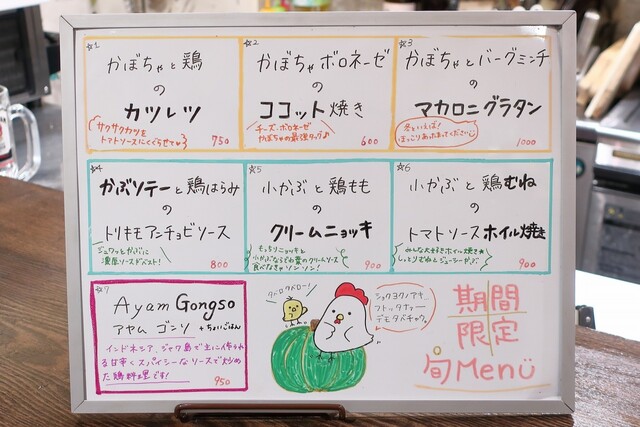 ☆1
かぼちゃと鶏
の
カツレツ
サクサクカツを
トマトソースにくぐらせて♡
750
☆2
かぼちゃボロネーゼ
の
ココット焼き
チーズ、ボロネーゼ
かぼちゃの最強タッグ♪
600
☆3
かぼちゃとバーグミンチ
の
マカロニグラタン
冬といえば!
ほっこりあったまってください
1000
☆4
かぶソテーと鶏はらみ
の
トリキモアンチョビソース
ジュワッとかぶに
濃厚ソースがベスト!
800
☆5
小かぶと鶏もも
の
クリームニョッキ
もっちりニョッキと
小かぶならでわ葉のクリームソース
食べなきゃソンソン!
900
☆6
小かぶと鶏むね
の
トマトソースホイル焼き
みんな大好きホイル焼き★
しっとりむねとジューシーかぶ
900
☆7
Ayam Gongso
アヤム ゴンソ +ちょいごはん
インドネシア、ジャワ島で主に作られ
る甘辛くスパイシーなソースで炒め
た鶏料理です!
950
タベロタベロー!
ショクヨクノアキ
フトッタナァー
デモタベチャウ。
期間
限定
旬Menü